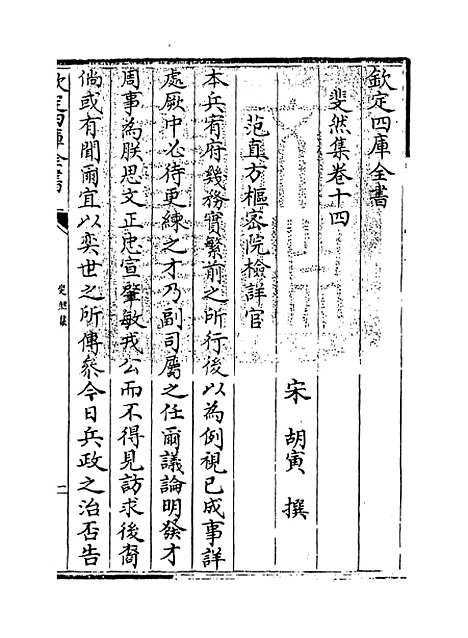 欽定四庫全書
斐然集卷十四
宋 胡寅 撰
范直方樞密院檢詳官
本兵宥府幾務實繁前之所行後以為例視已成事詳
處厥中必待更練之才乃副司屬之任爾議論明發才
周事為朕思文正忠宣肇敏戎公而不得見訪求後裔
倘或有聞爾宜以奕世之所傳叅今日兵政之治否告
欽定四庫全書
斐然集
一